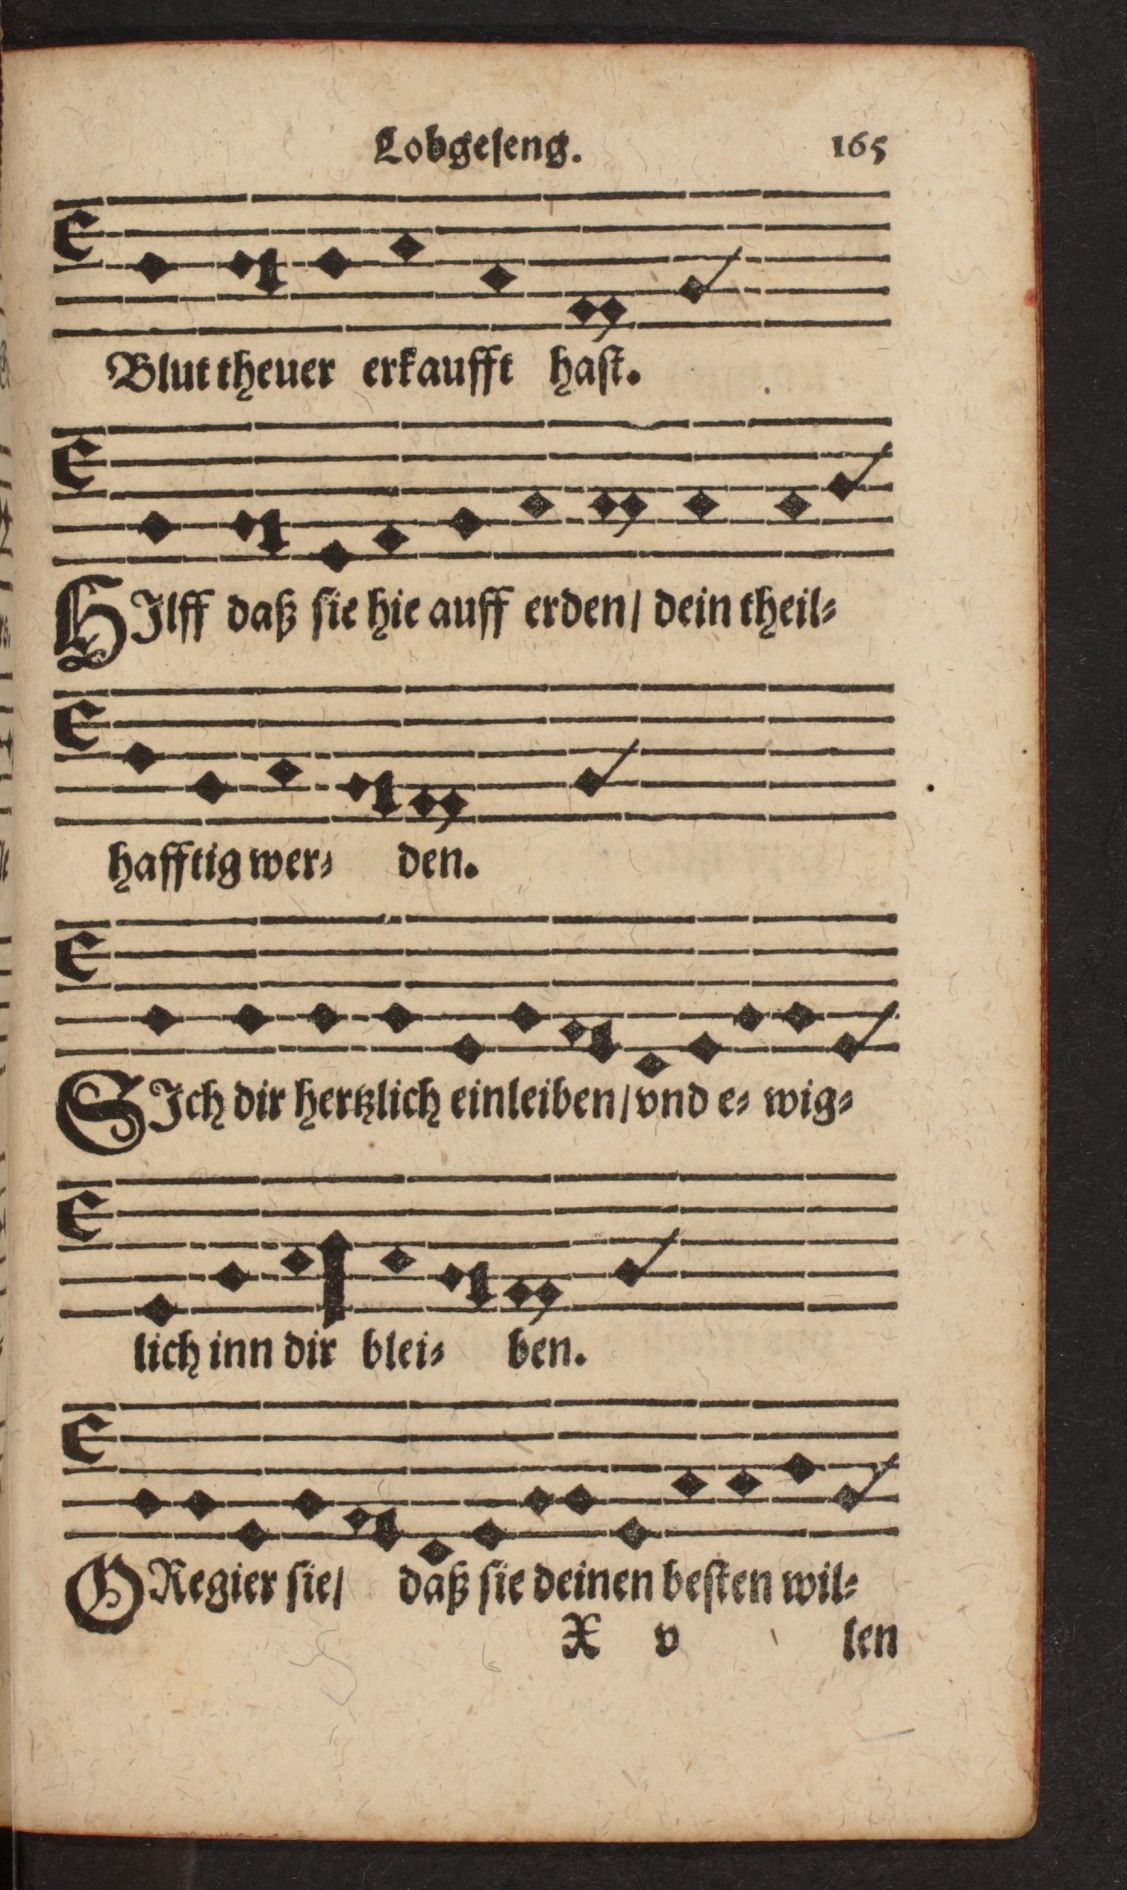 Lobgeseng. 165
Blut theuer erkaufft hast.
HIlff daß sie hie auff erden/ dein theil⸗
hafftig wer⸗ den.
SIch dir hertzlich einleiben/ vnd e⸗ wig⸗
lich inn dir blei⸗ ben.
ORegier sie/ daß sie deinen besten wil⸗
X v len